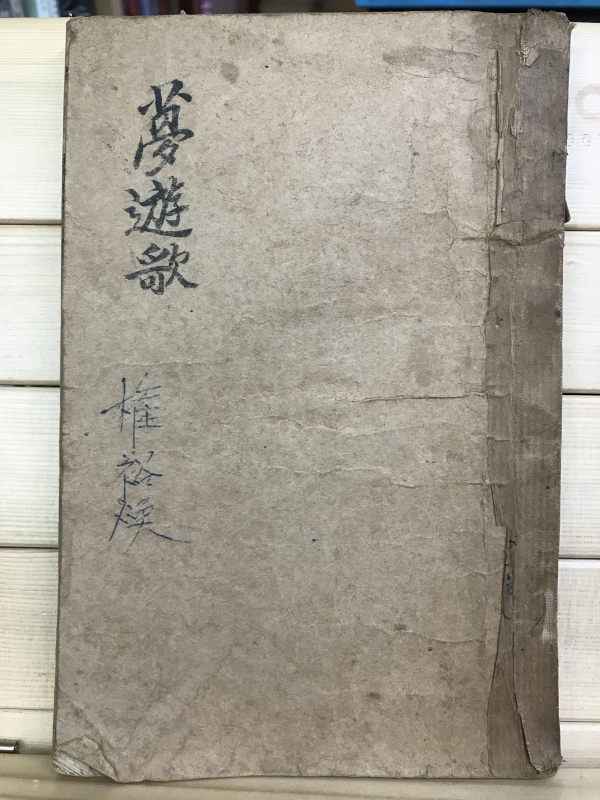 夢遊歌
權裕煥